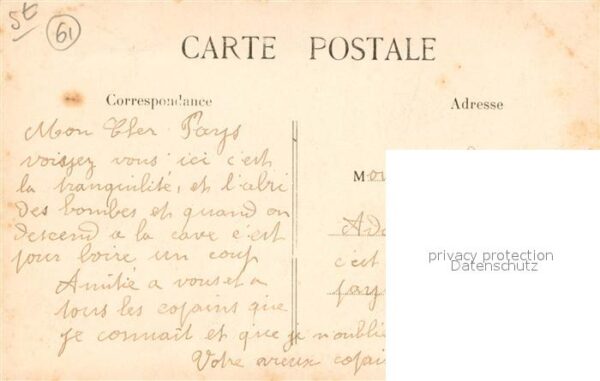 St
61
CARTE POSTALE
Correspondance
Adresse
Mon Cher Pays
voissez vous ici c'est
la tranquilité, et l'abri
des bombes et quand on
descend a la cave c'est
pour boire un coup
Amitié a vous et a
tous les copains que
je connait et que je n'oublie
Votre vieux copain
M
c'est
privacy protection
Datenschutz